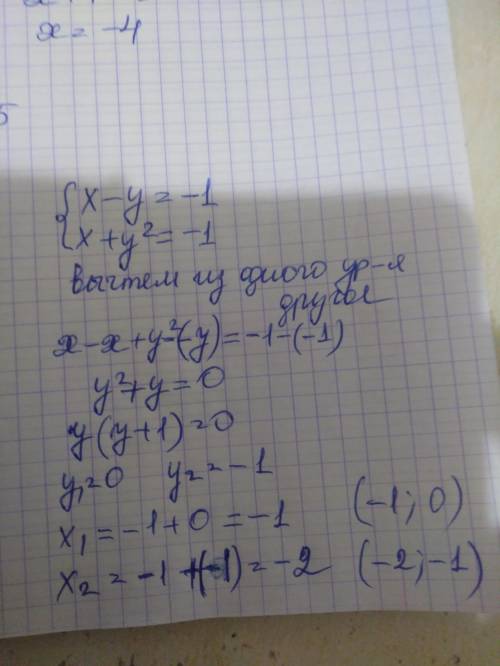 x = -4
5
{ x - y = -1
x + y² = -1
вычтем из одного ур-я
другое
x - x + y² - (-y) = -1 - (-1)
y² + y = 0
y(y+1) = 0
y₁=0 y₂ = -1
x₁ = -1+0 = -1 (-1; 0)
x₂ = -1 + (-1) = -2 (-2; -1)